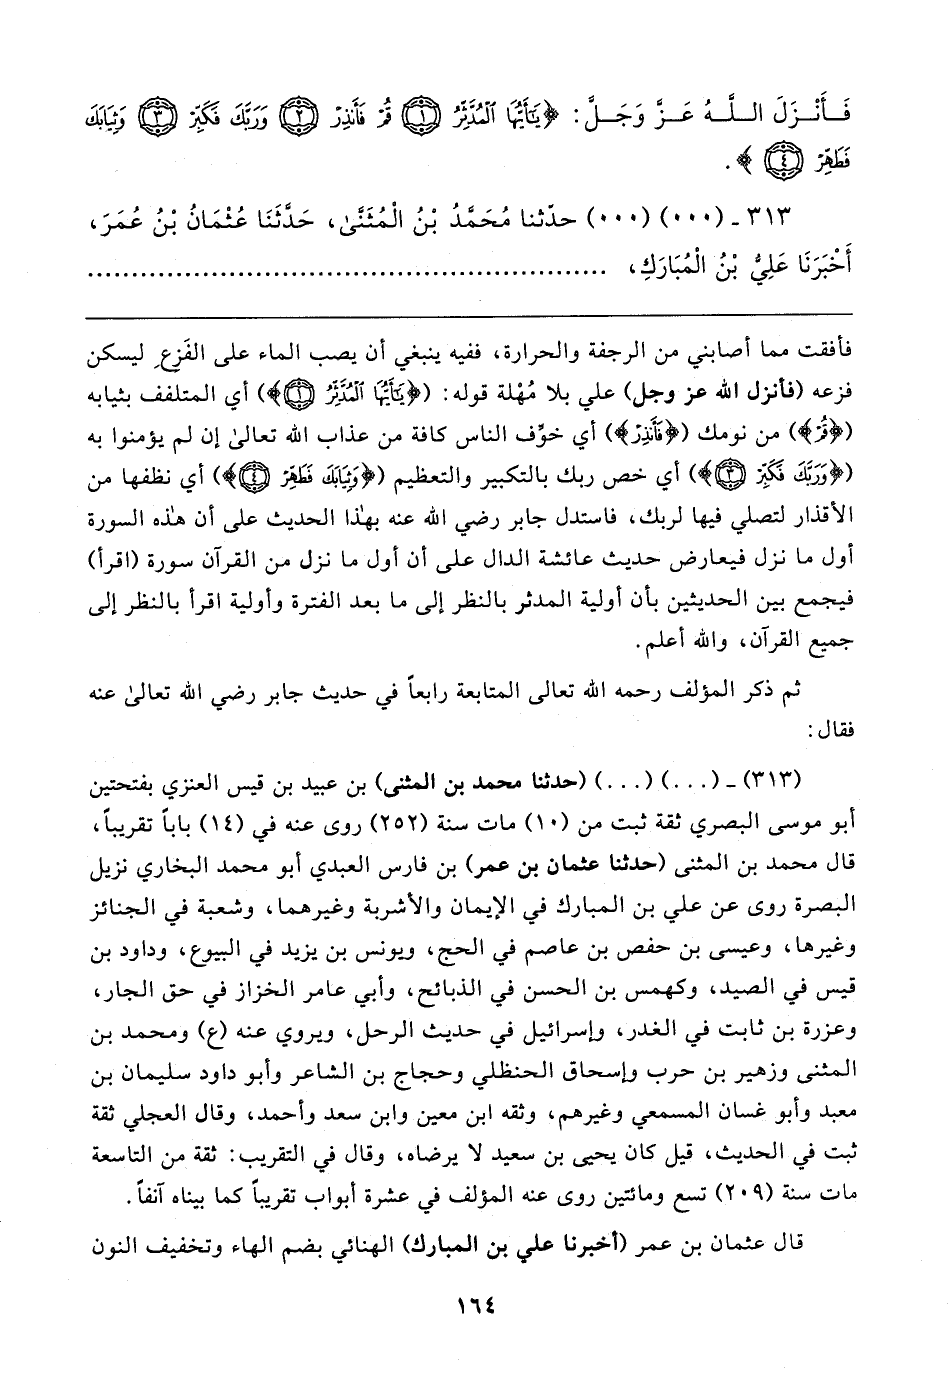 فَأَنْزَلَ اللَّهُ عَزَّ وَجَلَّ: ﴿يَٰٓأَيُّهَا ٱلْمُدَّثِّرُ ۝١ قُمْ فَأَنذِرْ ۝٢ وَرَبَّكَ فَكَبِّرْ ۝٣ وَثِيَابَكَ
فَطَهِّرْ ۝٤﴾.
٣١٣ - (٠٠٠) (٠٠٠) حدّثنا مُحَمَّدُ بْنُ الْمُثَنَّىٰ، حَدَّثَنَا عُثْمَانُ بْنُ عُمَرَ،
أَخْبَرَنَا عَلِيُّ بْنُ الْمُبَارَكِ، ..........................................................
فأفقت مما أصابني من الرجفة والحرارة، ففيه ينبغي أن يصب الماء على الفَزعِ ليسكن
فزعه (فأنزل الله عز وجل) علي بلا مُهْلة قوله: (﴿يَٰٓأَيُّهَا ٱلْمُدَّثِّرُ ۝١﴾) أي المتلفف بثيابه
(﴿قُمْ﴾) من نومك (﴿فَأَنذِرْ﴾) أي خوِّف الناس كافة من عذاب الله تعالىٰ إن لم يؤمنوا به
(﴿وَرَبَّكَ فَكَبِّرْ ۝٣﴾) أي خص ربك بالتكبير والتعظيم (﴿وَثِيَابَكَ فَطَهِّرْ ۝٤﴾) أي نظفها من
الأقذار لتصلي فيها لربك، فاستدل جابر رضي الله عنه بهٰذا الحديث على أن هٰذه السورة
أول ما نزل فيعارض حديث عائشة الدال على أن أول ما نزل من القرآن سورة (اقرأ)
فيجمع بين الحديثين بأن أولية المدثر بالنظر إلى ما بعد الفترة وأولية اقرأ بالنظر إلى
جميع القرآن، والله أعلم.
ثم ذكر المؤلف رحمه الله تعالى المتابعة رابعاً في حديث جابر رضي الله تعالىٰ عنه
فقال:
(٣١٣) - (...) (...) (حدثنا محمد بن المثنى) بن عبيد بن قيس العنزي بفتحتين
أبو موسى البصري ثقة ثبت من (١٠) مات سنة (٢٥٢) روى عنه في (١٤) باباً تقريباً،
قال محمد بن المثنى (حدثنا عثمان بن عمر) بن فارس العبدي أبو محمد البخاري نزيل
البصرة روى عن علي بن المبارك في الإيمان والأشربة وغيرهما، وشعبة في الجنائز
وغيرها، وعيسى بن حفص بن عاصم في الحج، ويونس بن يزيد في البيوع، وداود بن
قيس في الصيد، وكهمس بن الحسن في الذبائح، وأبي عامر الخزاز في حق الجار،
وعزرة بن ثابت في الغدر، وإسرائيل في حديث الرحل، ويروي عنه (ع) ومحمد بن
المثنى وزهير بن حرب وإسحاق الحنظلي وحجاج بن الشاعر وأبو داود سليمان بن
معبد وأبو غسان المسمعي وغيرهم، وثقه ابن معين وابن سعد وأحمد، وقال العجلي ثقة
ثبت في الحديث، قيل كان يحيى بن سعيد لا يرضاه، وقال في التقريب: ثقة من التاسعة
مات سنة (٢٠٩) تسع ومائتين روى عنه المؤلف في عشرة أبواب تقريباً كما بيناه آنفاً.
قال عثمان بن عمر (أخبرنا علي بن المبارك) الهنائي بضم الهاء وتخفيف النون
١٦٤